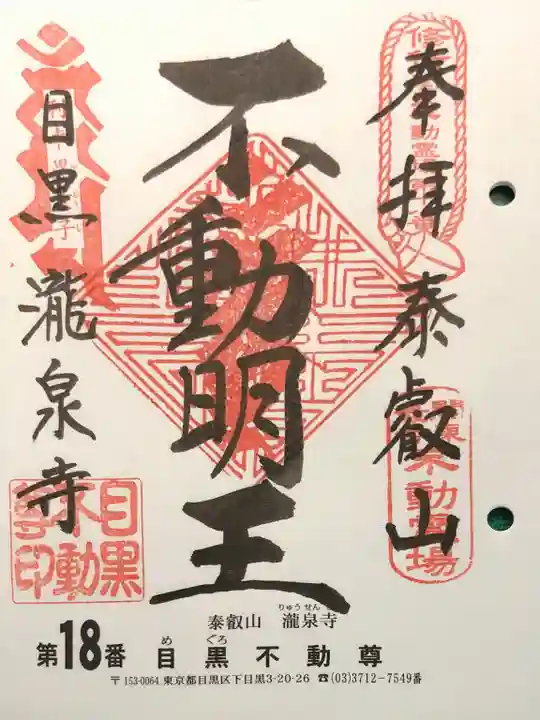 奉拝 泰叡山
不動明王
目黒 瀧泉寺
関東不動霊場
目黒不動尊印
泰叡山 瀧泉寺
りゅうせん
第18番 目黒不動尊
め ぐろ
〒153-0064 東京都目黒区下目黒3-20-26 ☎(03)3712-7549番